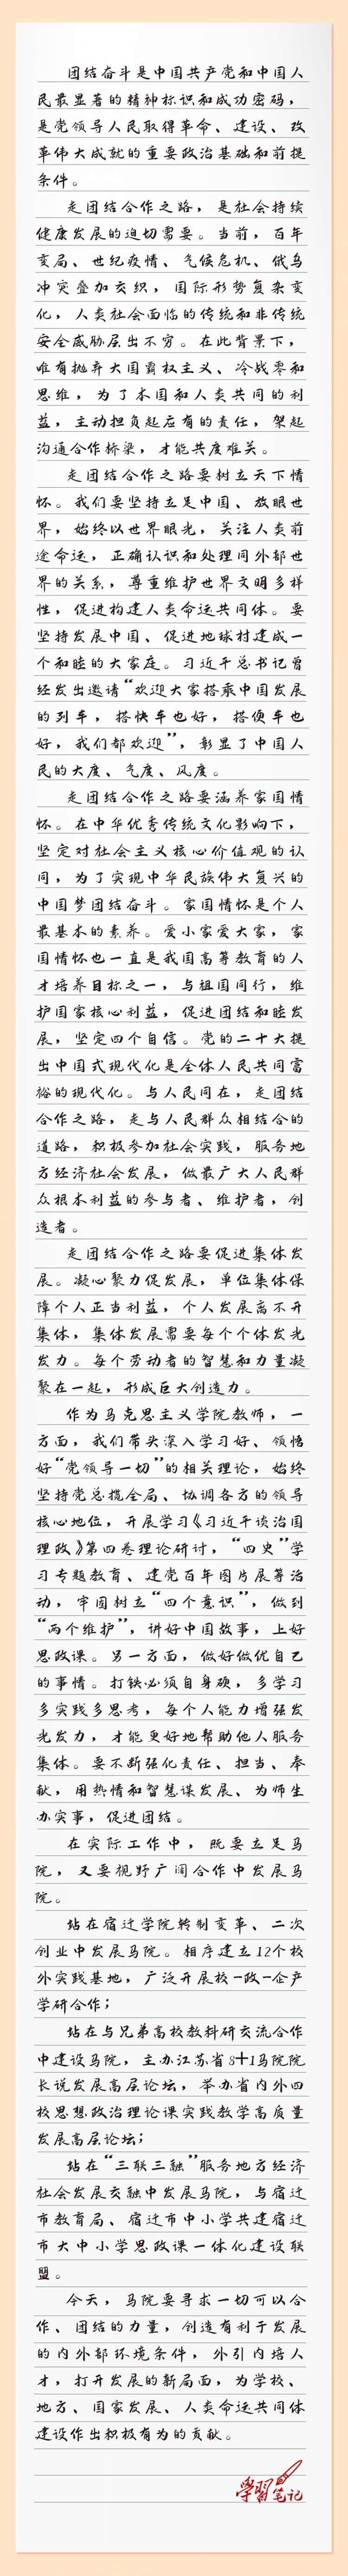 团结奋斗是中国共产党和中国人
民最显著的精神标识和成功密码，
是党领导人民取得革命、建设、改
革伟大成就的重要政治基础和前提
条件。
走团结合作之路，是社会持续
健康发展的迫切需要。当前，百年
变局、世纪疫情、气候危机、俄乌
冲突叠加交织，国际形势复杂变
化，人类社会面临的传统和非传统
安全威胁层出不穷。在此背景下，
唯有抛弃大国霸权主义、冷战零和
思维，为了本国和人类共同的利
益，主动担负起应有的责任，架起
沟通合作桥梁，才能共度难关。
走团结合作之路要树立天下情
怀。我们要坚持立足中国、放眼世
界，始终以世界眼光，关注人类前
途命运，正确认识和处理同外部世
界的关系，尊重维护世界文明多样
性，促进构建人类命运共同体。要
坚持发展中国、促进地球村建成一
个和睦的大家庭。习近平总书记曾
经发出邀请“欢迎大家搭乘中国发展
的列车，搭快车也好，搭便车也
好，我们都欢迎”，彰显了中国人
民的大度、气度、风度。
走团结合作之路要涵养家国情
怀。在中华优秀传统文化影响下，
坚定对社会主义核心价值观的认
同，为了实现中华民族伟大复兴的
中国梦团结奋斗。家国情怀是个人
最基本的素养。爱小家爱大家，家
国情怀也一直是我国高等教育的人
才培养目标之一，与祖国同行，维
护国家核心利益，促进团结和睦发
展，坚定四个自信。党的二十大提
出中国式现代化是全体人民共同富
裕的现代化。与人民同在，走团结
合作之路，走与人民群众相结合的
道路，积极参加社会实践，服务地
方经济社会发展，做最广大人民群
众根本利益的参与者、维护者，创
造者。
走团结合作之路要促进集体发
展。凝心聚力促发展，单位集体保
障个人正当利益，个人发展离不开
集体，集体发展需要每个个体发光
发力。每个劳动者的智慧和力量凝
聚在一起，形成巨大创造力。
作为马克思主义学院教师，一
方面，我们带头深入学习好、领悟
好“党领导一切”的相关理论，始终
坚持党总揽全局、协调各方的领导
核心地位，开展学习《习近平谈治国
理政》第四卷理论研讨，“四史”学
习专题教育、建党百年图片展等活
动，牢固树立“四个意识”，做到
“两个维护”，讲好中国故事，上好
思政课。另一方面，做好做优自己
的事情。打铁必须自身硬，多学习
多实践多思考，每个人能力增强发
光发力，才能更好地帮助他人服务
集体。要不断强化责任、担当、奉
献，用热情和智慧谋发展、为师生
办实事，促进团结。
在实际工作中，既要立足马
院，又要视野广阔合作中发展马
院。
站在宿迁学院转制变革、二次
创业中发展马院。相序建立12个校
外实践基地，广泛开展校-政-企产
学研合作；
站在与兄弟高校教科研交流合作
中建设马院，主办江苏省8+1马院院
长说发展高层论坛，举办省内外四
校思想政治理论课实践教学高质量
发展高层论坛；
站在“三联三融”服务地方经济
社会发展交融中发展马院，与宿迁
市教育局、宿迁市中小学共建宿迁
市大中小学思政课一体化建设联
盟。
今天，马院要寻求一切可以合
作、团结的力量，创造有利于发展
的内外部环境条件，外引内培人
才，打开发展的新局面，为学校、
地方、国家发展、人类命运共同体
建设作出积极有为的贡献。
學習笔记